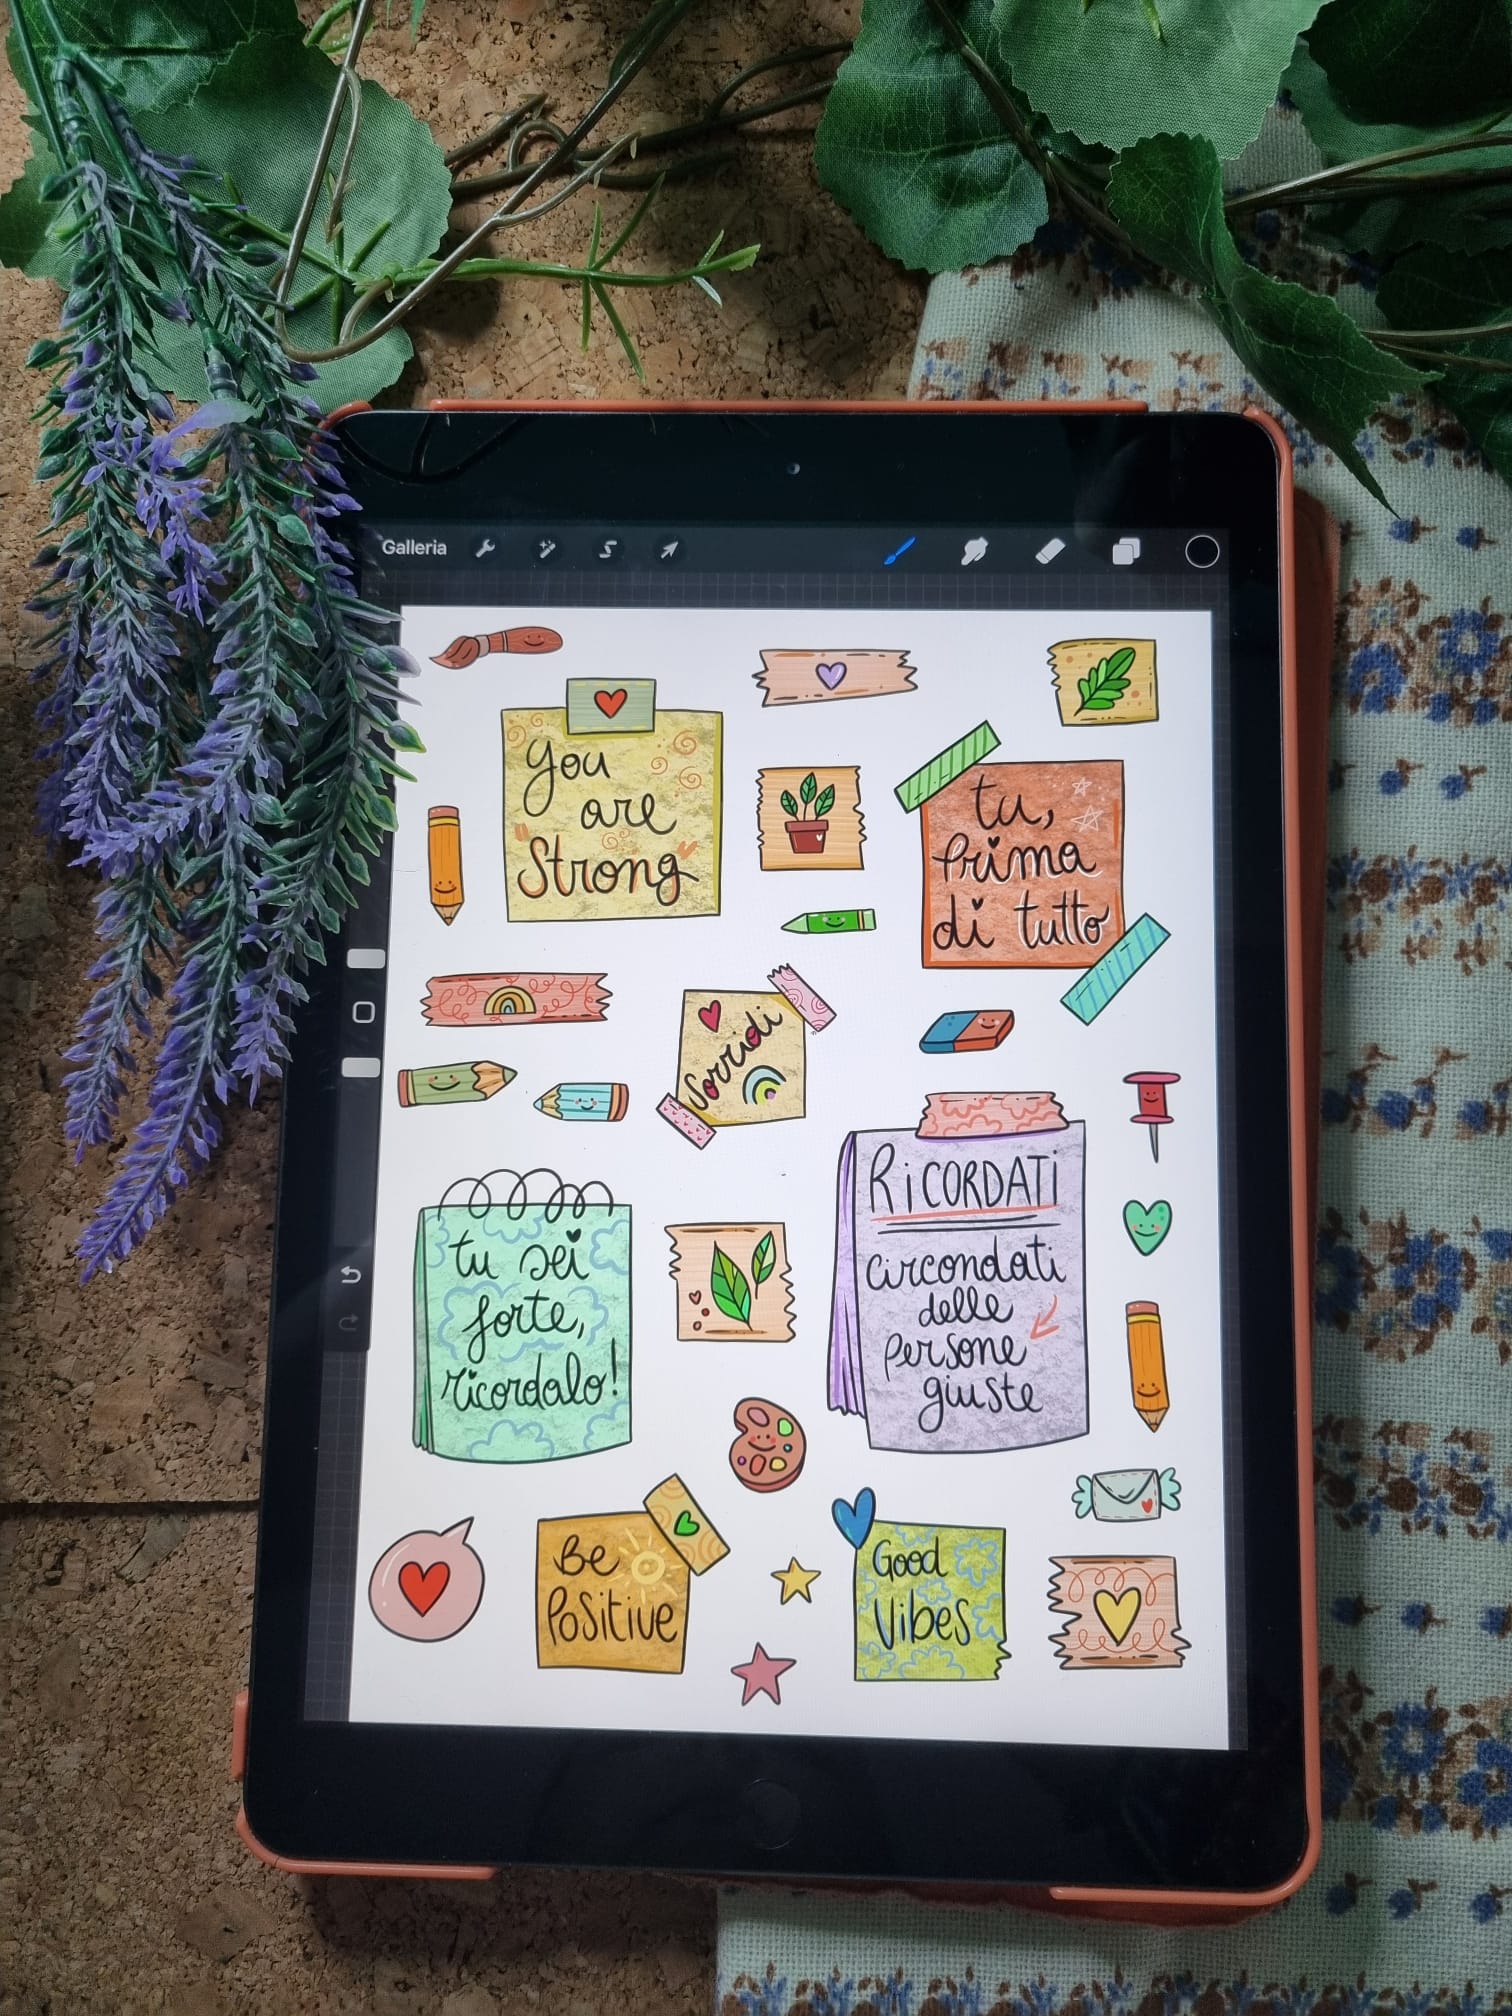 Galleria
You
are
Strong
tu,
Prima
di tutto
Sorridi
RiCORDATi
circondati
delle
persone
giuste
tu sei
forte,
ricordalo!
Be
Positive
Good
Vibes